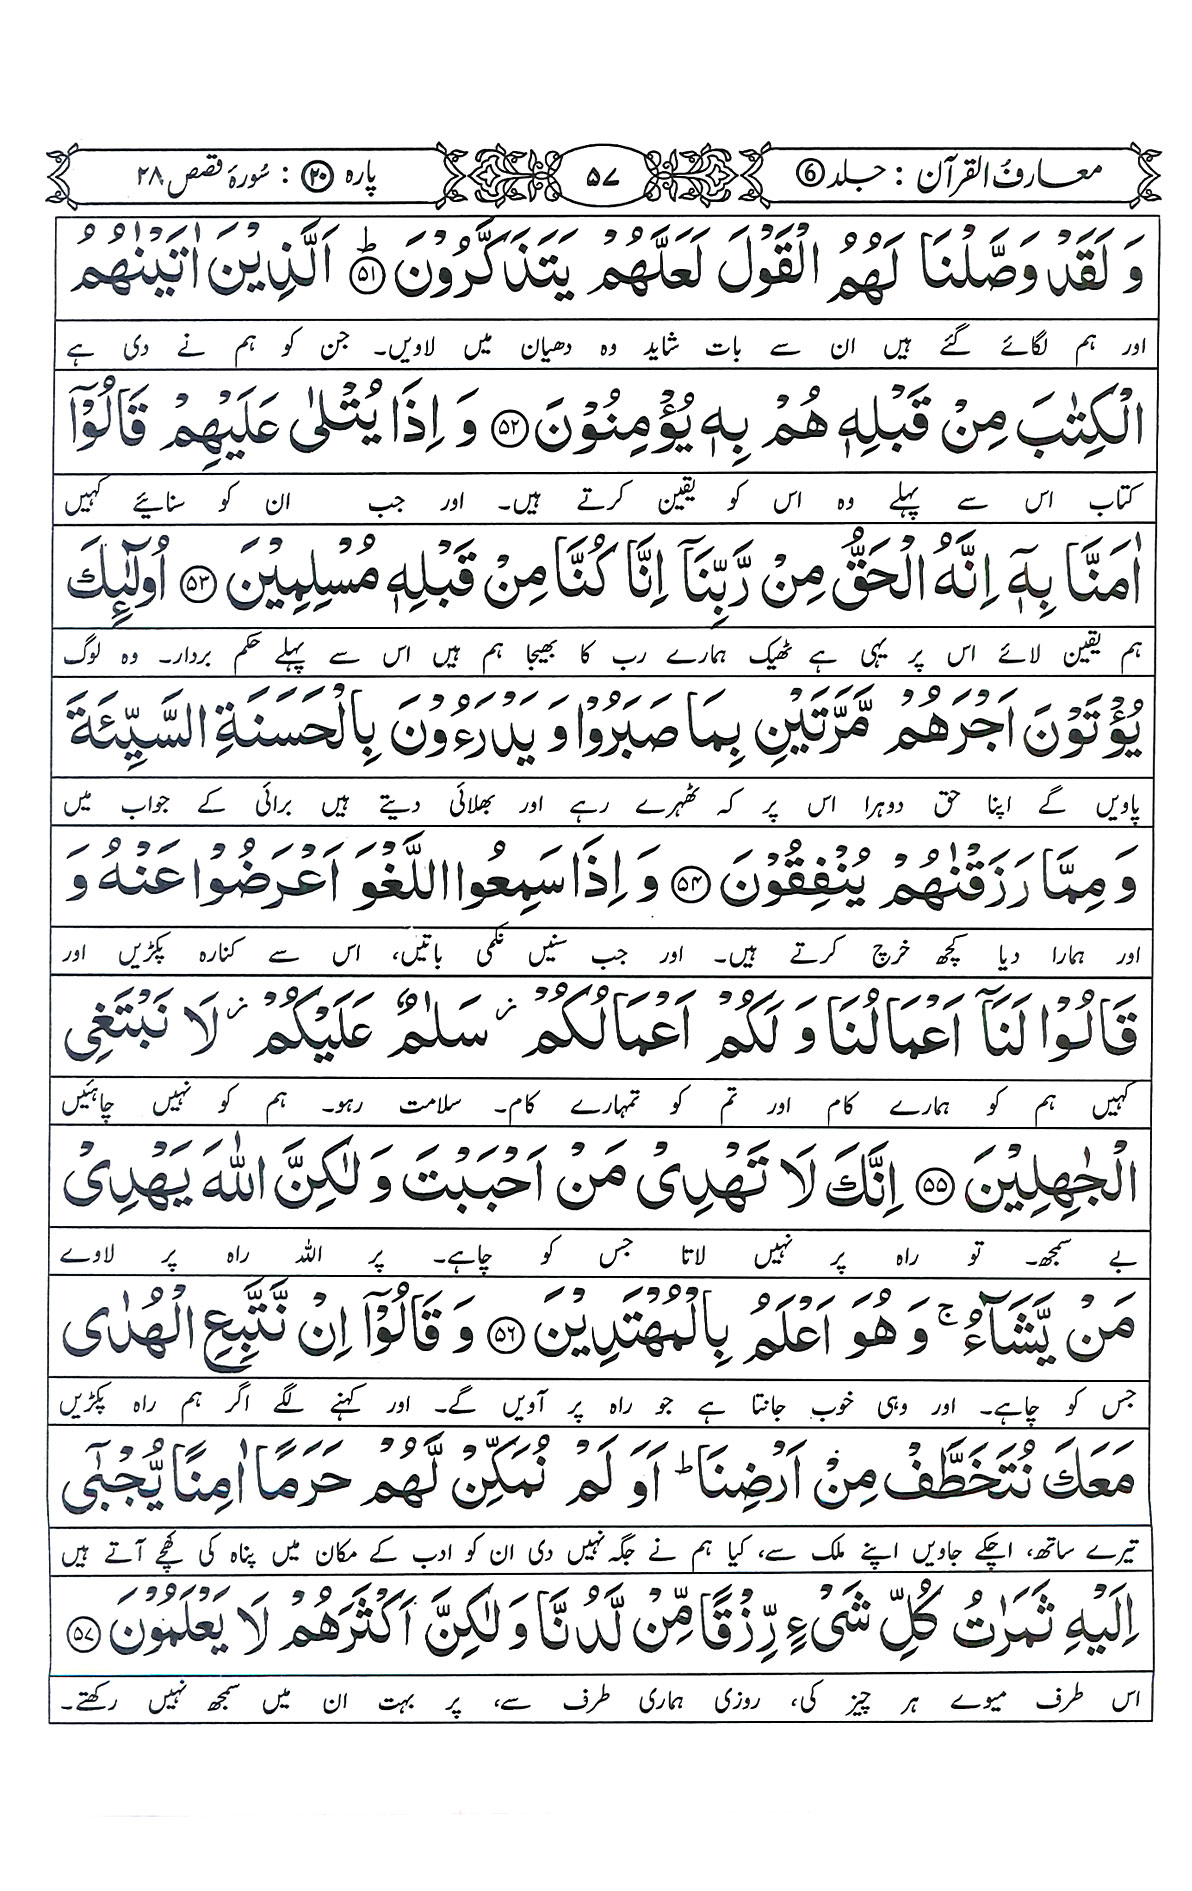 معارف القرآن : جلد ⑥
۵۷
پارہ ۲۰ : سُورۂ قصص ۲۸
وَ لَقَدْ وَصَّلْنَا لَهُمُ الْقَوْلَ لَعَلَّهُمْ يَتَذَكَّرُوْنَ ؕ﴿۵۱﴾ اَلَّذِيْنَ اٰتَيْنٰهُمُ
اور ہم لگائے گئے ہیں ان سے بات شاید وہ دھیان میں لاویں۔ جن کو ہم نے دی ہے
الْكِتٰبَ مِنْ قَبْلِهٖ هُمْ بِهٖ يُؤْمِنُوْنَ ﴿۵۲﴾ وَ اِذَا يُتْلٰى عَلَيْهِمْ قَالُوْۤا
کتاب اس سے پہلے وہ اس کو یقین کرتے ہیں۔ اور جب ان کو سنائیے کہیں
اٰمَنَّا بِهٖۤ اِنَّهُ الْحَقُّ مِنْ رَّبِّنَاۤ اِنَّا كُنَّا مِنْ قَبْلِهٖ مُسْلِمِيْنَ ﴿۵۳﴾ اُولٰٓئِكَ
ہم یقین لائے اس پر یہی ہے ٹھیک ہمارے رب کا بھیجا ہم ہیں اس سے پہلے حکم بردار۔ وہ لوگ
يُؤْتَوْنَ اَجْرَهُمْ مَّرَّتَيْنِ بِمَا صَبَرُوْا وَ يَدْرَءُوْنَ بِالْحَسَنَةِ السَّيِّئَةَ
پاویں گے اپنا حق دوہرا اس پر کہ ٹھہرے رہے اور بھلائی دیتے ہیں برائی کے جواب میں
وَ مِمَّا رَزَقْنٰهُمْ يُنْفِقُوْنَ ﴿۵۴﴾ وَ اِذَا سَمِعُوا اللَّغْوَ اَعْرَضُوْا عَنْهُ وَ
اور ہمارا دیا کچھ خرچ کرتے ہیں۔ اور جب سنیں نکمی باتیں، اس سے کنارہ پکڑیں اور
قَالُوْا لَنَاۤ اَعْمَالُنَا وَ لَكُمْ اَعْمَالُكُمْ ز سَلٰمٌ عَلَيْكُمْ ز لَا نَبْتَغِى
کہیں ہم کو ہمارے کام اور تم کو تمہارے کام۔ سلامت رہو۔ ہم کو نہیں چاہئیں
الْجٰهِلِيْنَ ﴿۵۵﴾ اِنَّكَ لَا تَهْدِىْ مَنْ اَحْبَبْتَ وَ لٰكِنَّ اللّٰهَ يَهْدِىْ
بے سمجھ۔ تو راہ پر نہیں لاتا جس کو چاہے۔ پر اللہ راہ پر لاوے
مَنْ يَّشَآءُ ۚ وَ هُوَ اَعْلَمُ بِالْمُهْتَدِيْنَ ﴿۵۶﴾ وَ قَالُوْۤا اِنْ نَّتَّبِعِ الْهُدٰى
جس کو چاہے۔ اور وہی خوب جانتا ہے جو راہ پر آویں گے۔ اور کہنے لگے اگر ہم راہ پکڑیں
مَعَكَ نُتَخَطَّفْ مِنْ اَرْضِنَا ؕ اَوَ لَمْ نُمَكِّنْ لَّهُمْ حَرَمًا اٰمِنًا يُّجْبٰٓى
تیرے ساتھ، اچکے جاویں اپنے ملک سے، کیا ہم نے جگہ نہیں دی ان کو ادب کے مکان میں پناہ کی کھچے آتے ہیں
اِلَيْهِ ثَمَرٰتُ كُلِّ شَىْءٍ رِّزْقًا مِّنْ لَّدُنَّا وَ لٰكِنَّ اَكْثَرَهُمْ لَا يَعْلَمُوْنَ ﴿۵۷﴾
اس طرف میوے ہر چیز کی، روزی ہماری طرف سے، پر بہت ان میں سمجھ نہیں رکھتے۔